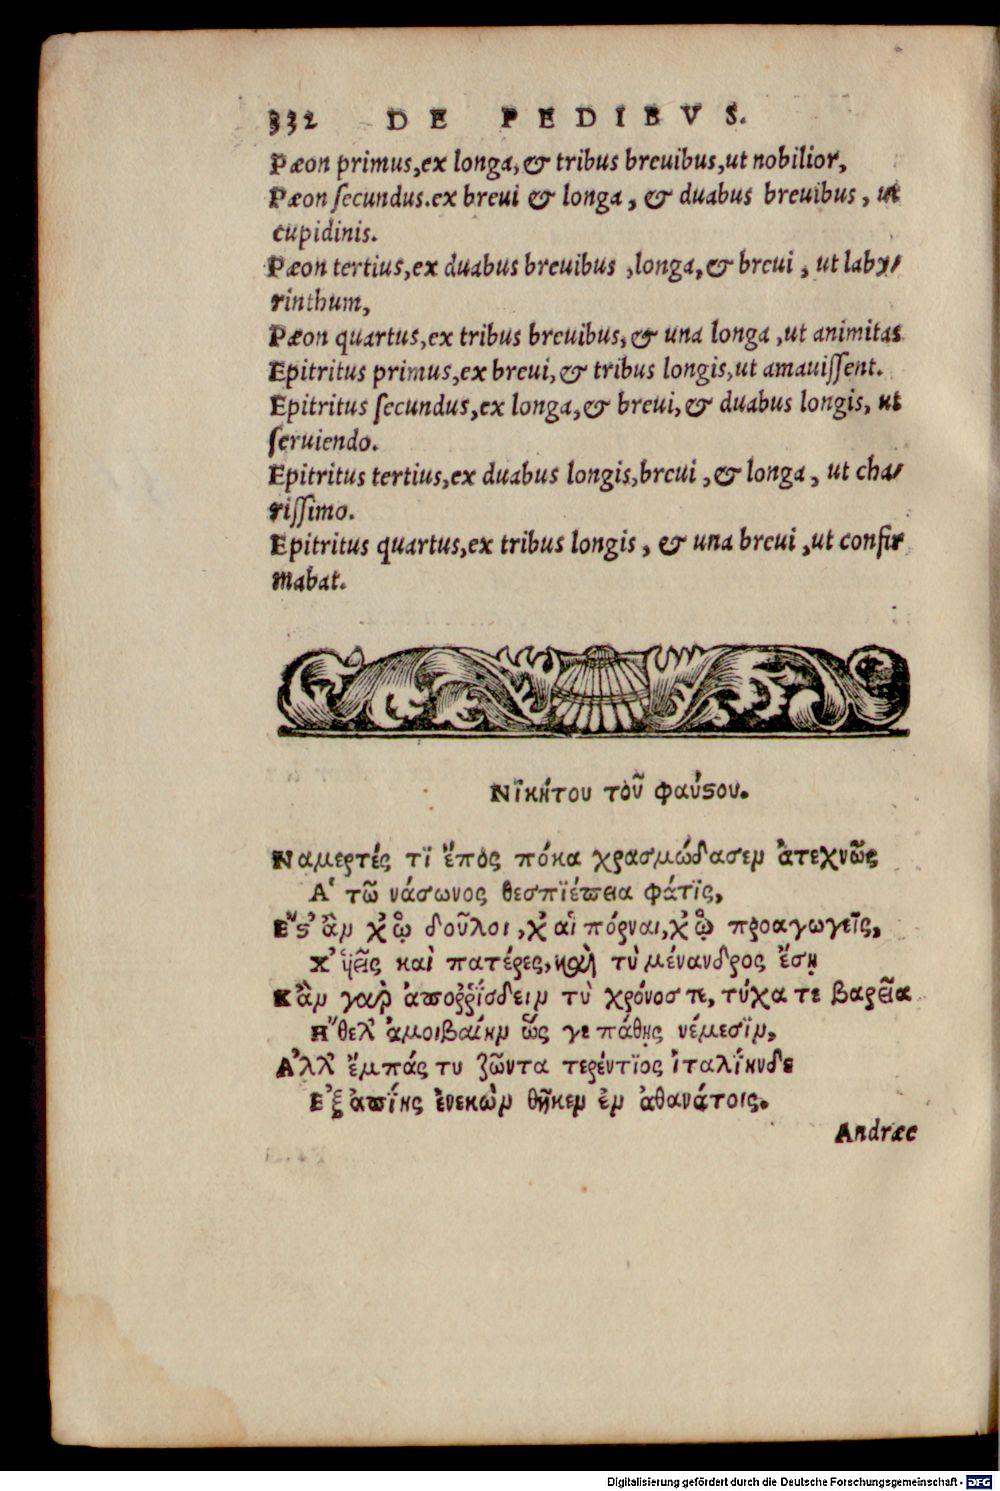 332 DE PEDIBVS.
Pæon primus,ex longa,& tribus breuibus,ut nobilior,
Pæon ſecundus.ex breui & longa, & duabus breuibus, ut
cupidinis.
Pæon tertius,ex duabus breuibus ,longa,& breui, ut laby/
rinthum,
Pæon quartus,ex tribus breuibus,& una longa ,ut animitas
Epitritus primus,ex breui,& tribus longis,ut amauiſſent.
Epitritus ſecundus,ex longa,& breui,& duabus longis, ut
ſeruiendo.
Epitritus tertius,ex duabus longis,breui ,& longa, ut cha/
riſſimo.
Epitritus quartus,ex tribus longis, & una breui ,ut confir
mabat.
Νικήτου τοῦ φαύϛου.
Ναμερτές τὶ ἔπος πόκα χρασμώδασεν ἀτεχνῶς
Α῾ τῶ νάσωνος θεσπιέπεια φάτις,
Ε῎ϛ᾽ ἂν χ᾽ δοῦλοι ,χ᾽ αἱ πόρναι,χ᾽ προαγωγεῖς,
καὶ πατέρες, καὶ τὺ μένανδρος ἔσῃ
Κἂν γαρ τὺ χρόνος τε, τύχα τε βαρεῖα
Η῎θελ᾽ ἀμοιβαίην ὥς γε πάθῃς νέμεσιν,
Α᾽λλ᾽ ἔμπάς τυ ζῶντα τερέντιος ἰταλίηνδε
Ε᾽ξαπίνης ἐνεκὼν θῆκεν ἐν ἀθανάτοις.
Andræe
Digitalisierung gefördert durch die Deutsche Forschungsgemeinschaft - DFG